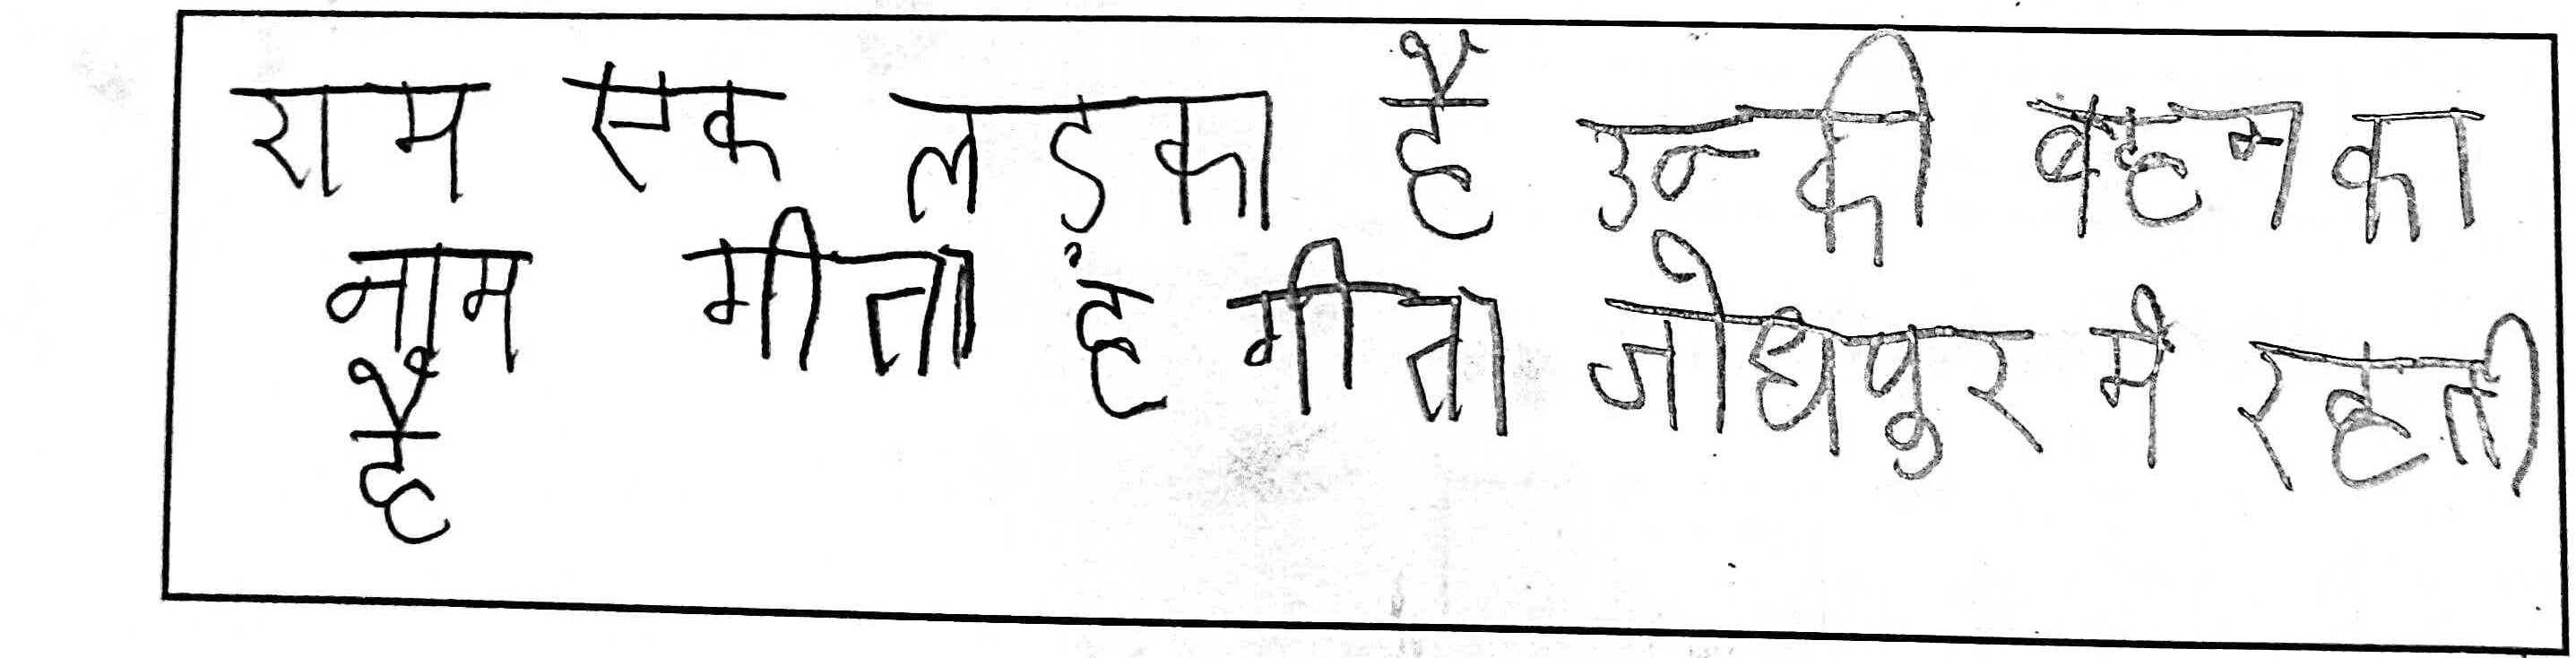 राम एक लडका है उनकी बहन का
नाम गीता हं गीता जोधपुर में रहती
है